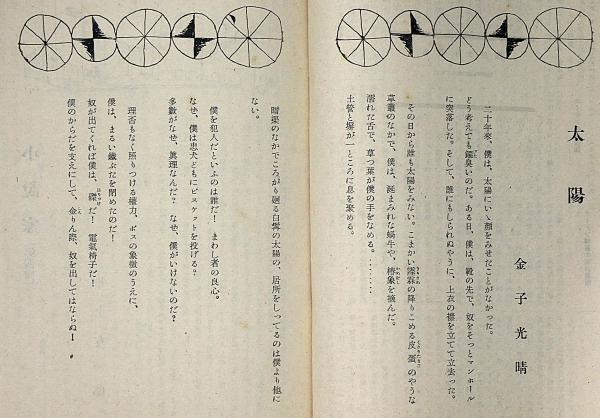 太陽
金子光晴
二十年來、僕は、太陽にいゝ顔をみせたことがなかった。
どう考えても臭いのだ。ある日、僕は、靴の先で、奴をそっとマンホール
に突落した。そして、誰にもしられぬやうに、上衣の襟を立てて立去った。
その日から誰も太陽をみない。こまかい霖の降りこめる皮蛋のやうな
草叢のなかで、僕は、涎まみれな蝸牛や、椿象を摘んだ。
濡れた舌で、草っ葉が僕の手をなめる。……
土管と塀が一ところに息を蒐める。
暗渠のなかでころがり廻る白磐の太陽の、居所をしってるのは僕より他に
ない。
僕を犯人だといふのは誰だ！まわし者の良心。
なぜ、僕は忠犬どもにビスケットを投げる？
多數がなぜ、眞理なんだ？なぜ、僕がいけないのだ？
理否もなく照りつける權力、ボスの象徴のうえに、
僕は、まるい鐵ぶたを閉めたのだ！
奴が出てくれば僕は、磔だ！電氣椅子だ！
僕のからだを支えにして、金りん際、奴を出してはならぬ！